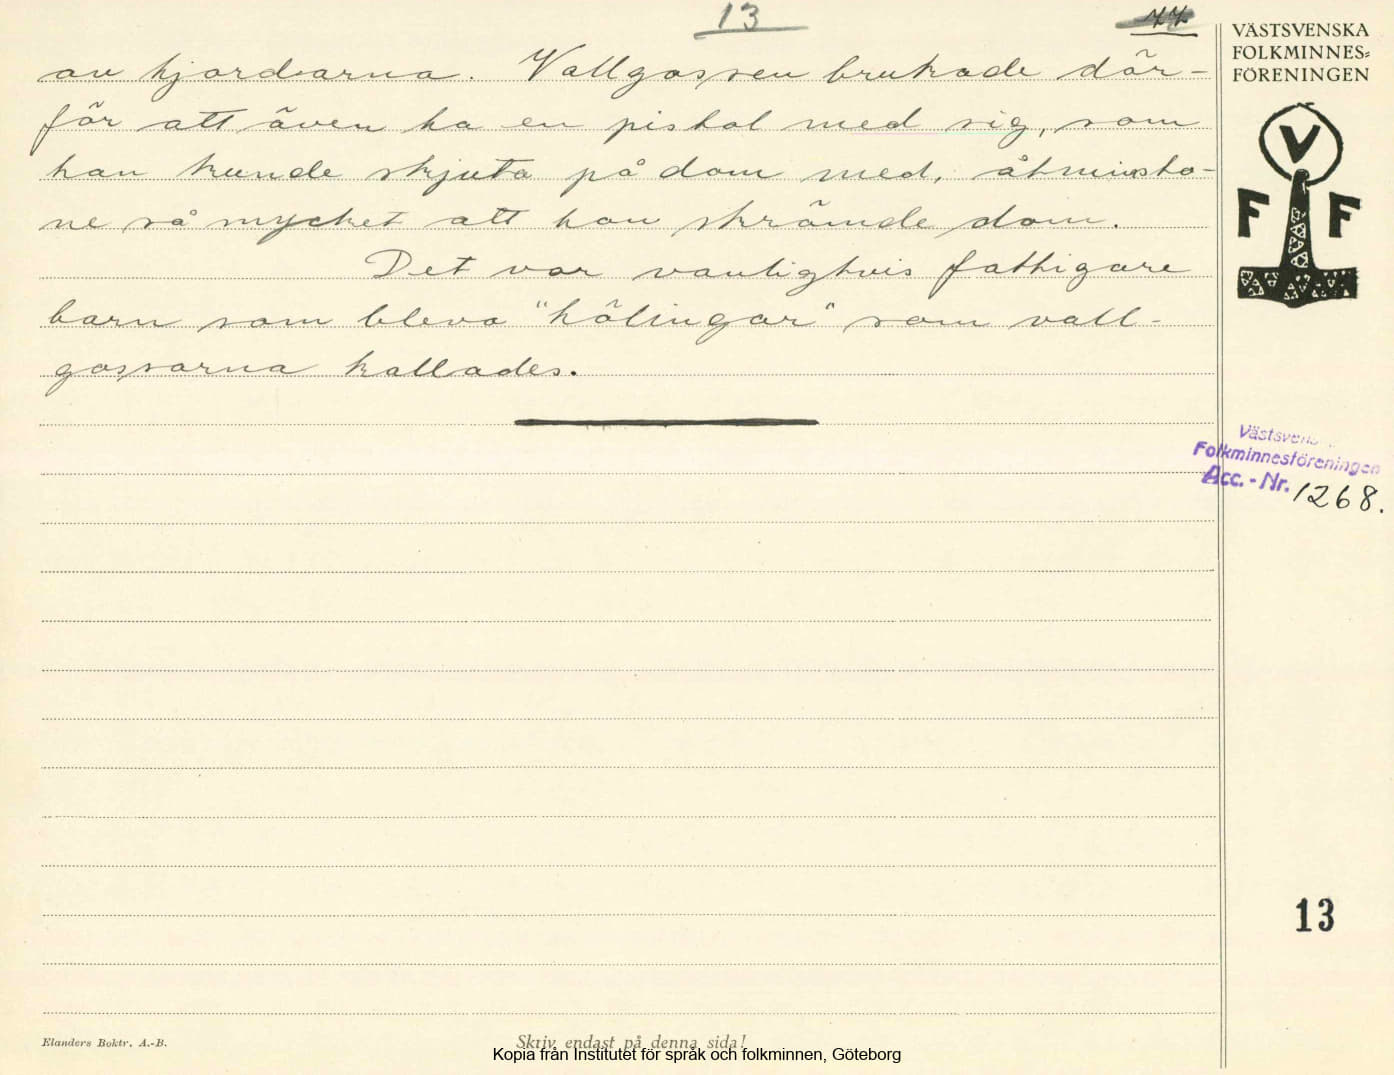 13
77
av hjordarna. Vallgossen brukade där-
för att även ha en pistol med sig, som
han kunde skjuta på dom med, åtminsto-
ne så mycket att han skrämde dom.
Det var vanligtvis fattigare
barn som bleva "hölingar" som vall-
gossarna kallades.
VÄSTSVENSKA
FOLKMINNES-
FÖRENINGEN
V
F F
Folkminnesföreningen
Acc.-Nr. 1268.
13
Elanders Boktr. A.-B.
Skriv endast på denna sida!
Kopia från Institutet för språk och folkminnen, Göteborg